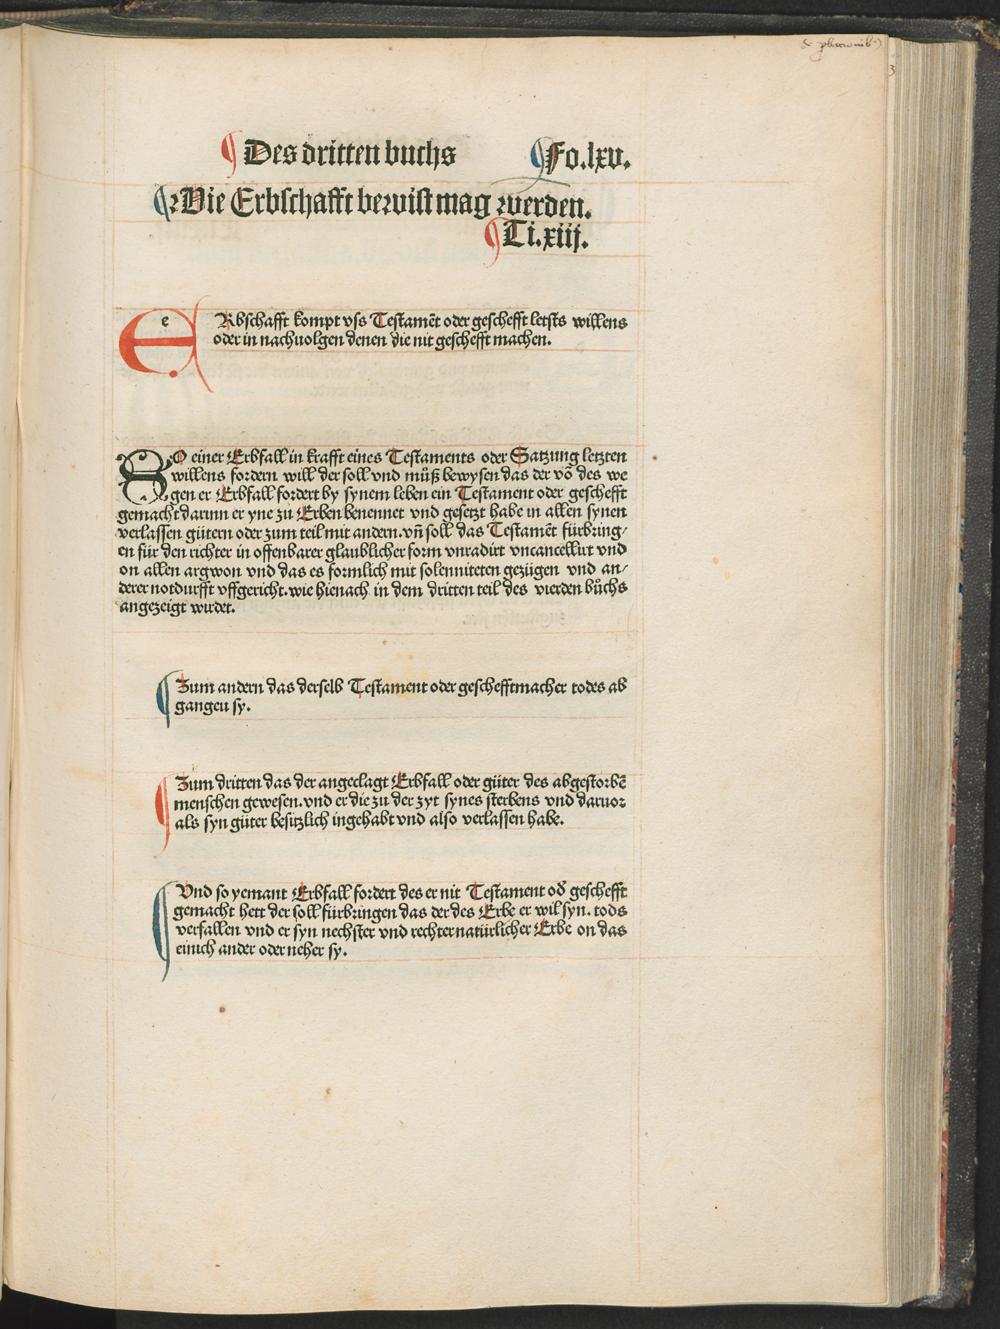 Des dritten buchs Fo.lxv.
Wie Erbschafft bewist mag werden.
Ti.xiij.
eRbschafft kompt vss Testamēt oder geschefft letsts willens
oder in nachuolgen denen die nit geschefft machen.
SO einer Erbfall in krafft eines Testaments oder Satzung letzten
willens fordern will der soll vnd müß bewysen das der vō des we
gen er Erbfall fordert by synem leben ein Testament oder geschefft
gemacht darinn er yne zu Erben benennet vnd gesetzt habe in allen synen
verlassen gütern oder zum teil mit andern. vn̄ soll das Testamēt fürbring/
en für den richter in offenbarer glaublicher form vnradirt vncancellirt vnd
on allen argwon vnd das es formlich mit solenniteten gezügen vnd an/
derer notdurfft vffgericht. wie hienach in dem dritten teil des vierden bůchs
angezeigt wirdet.
Zum andern das derselb Testament oder geschefftmacher todes ab
gangen sy.
Zum dritten das der angeclagt Erbfall oder güter des abgestorbē
menschen gewesen. vnd er die zu der zyt synes sterbens vnd daruor
als syn güter besitzlich ingehabt vnd also verlassen habe.
Vnd so yemant Erbfall fordert des er nit Testament od̄ geschefft
gemacht hett der soll fürbringen das der des Erbe er wil syn. tods
verfallen vnd er syn nechster vnd rechter natürlicher Erbe on das
einich ander oder neher sy.